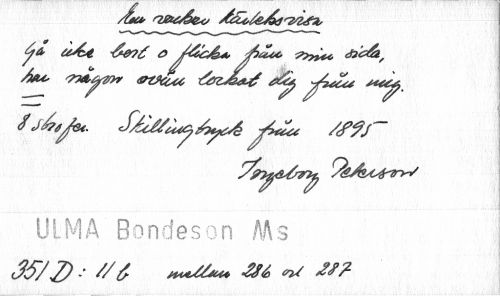 En vacker Kärleksvisa
Gå icke bort o flicka från min sida,
har någon ovän lockat dig från mig.
8 strofer. Skillingtryck från 1895
Ingeborg Peterson
ULMA Bondeson Ms
351 D: 11 b mellan 286 och 287